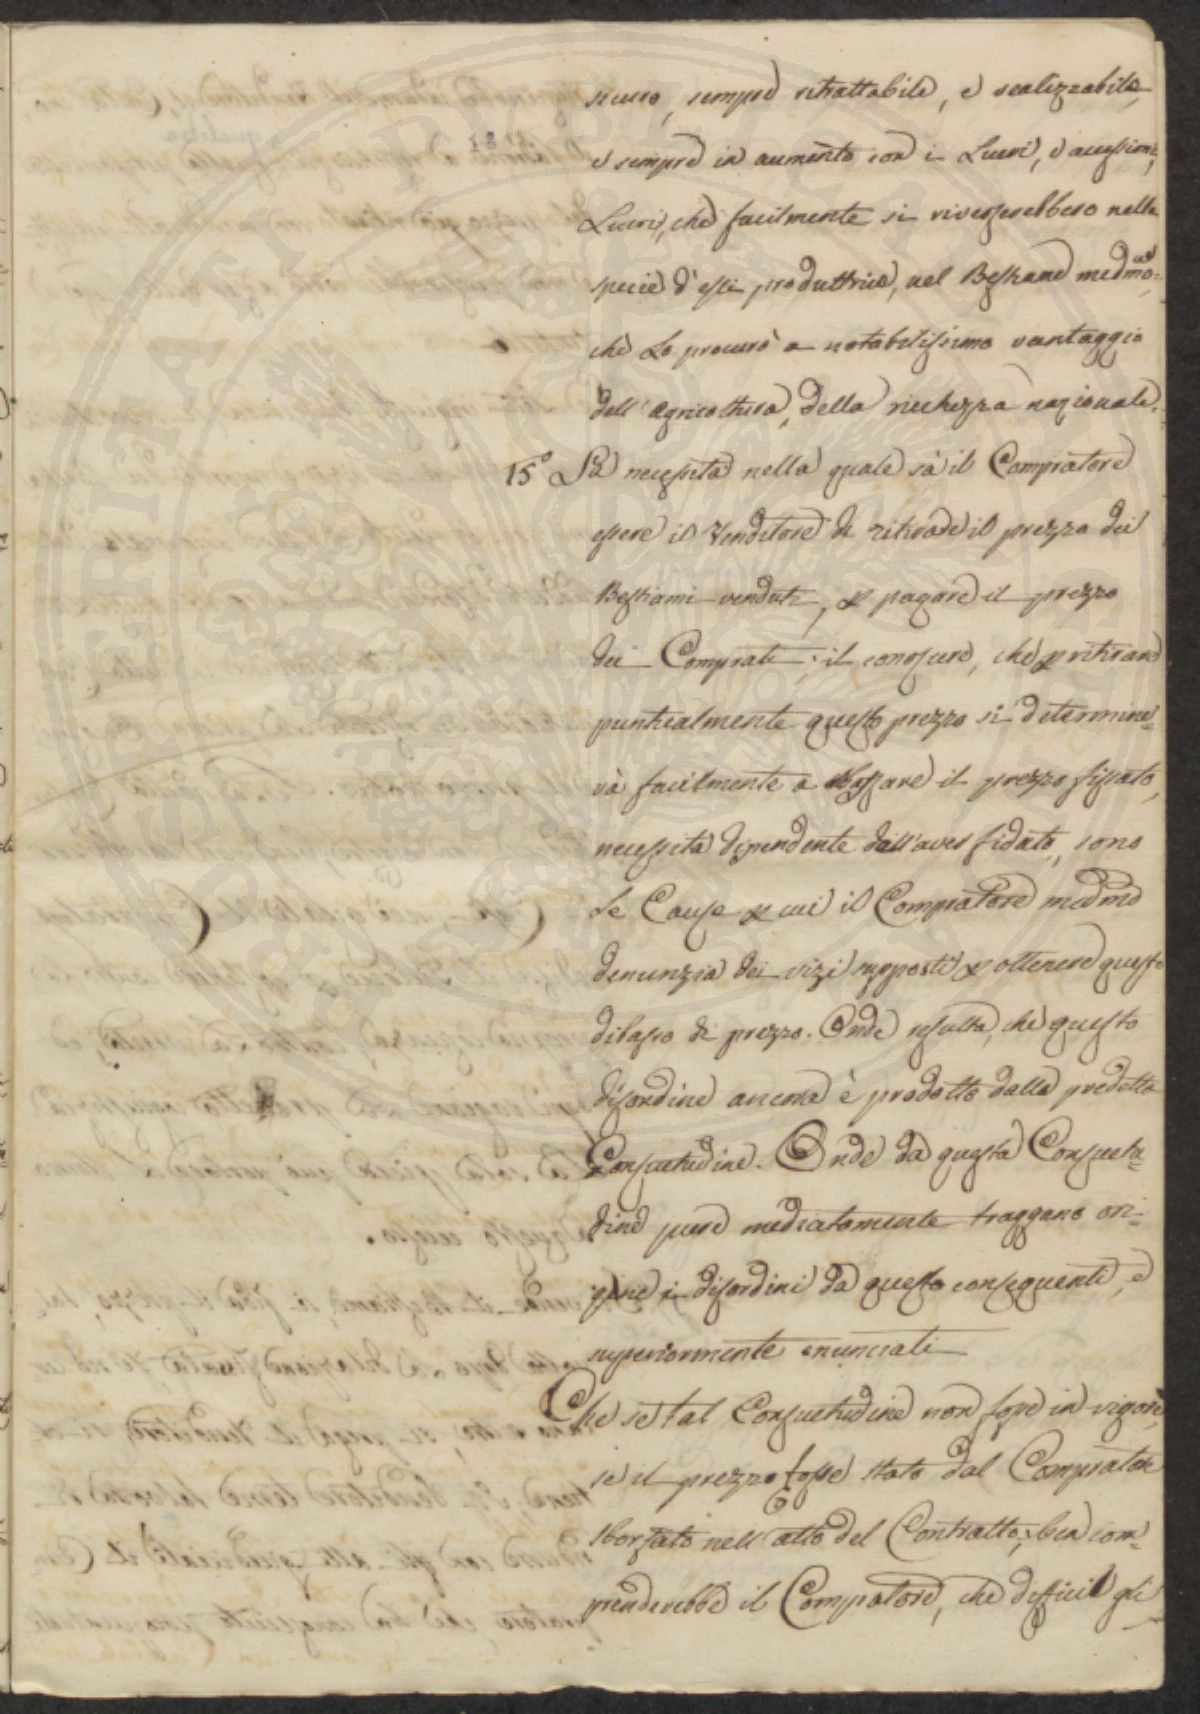 sicuro, sempre ritrattabile, e realizzabile,
e sempre in aumento con i Lucri, e accessioni,
Lucri, che facilmente si riverserebbero nella
specie d'essi produttrice, nel Bestiame medmo:
che Lo procurò a notabilissimo vantaggio
dell'agricoltura, della ricchezza nazionale.
15° La necessità nella quale sà il Compratore
essere il Venditore di ritirare il prezzo dei
Bestiami venduti, p pagare il prezzo
dei Comprati; il conoscere, che p ritirare
puntualmente questo prezzo si determine=
rà facilmente a il prezzo fissato,
necessità dipendente dall'aver fidato, sono
Le Cause p cui il Compratore medmo
denunzia dei vizi supposti p ottenere questo
dibasso di prezzo. Onde resulta, che questo
disordine ancora è prodotto dalla predetta
Consuetudine. Onde da questa Consuetu=
dine pure mediatamente traggano ori=
gine i disordini da questo conseguenti, e
superiormente enunciati
Che se tal Consuetudine non fosse in vigore,
se il prezzo fosse stato dal Compratore
sborsato nell'atto del Contratto; ben com=
prenderebbe il Compratore, che difficil gli